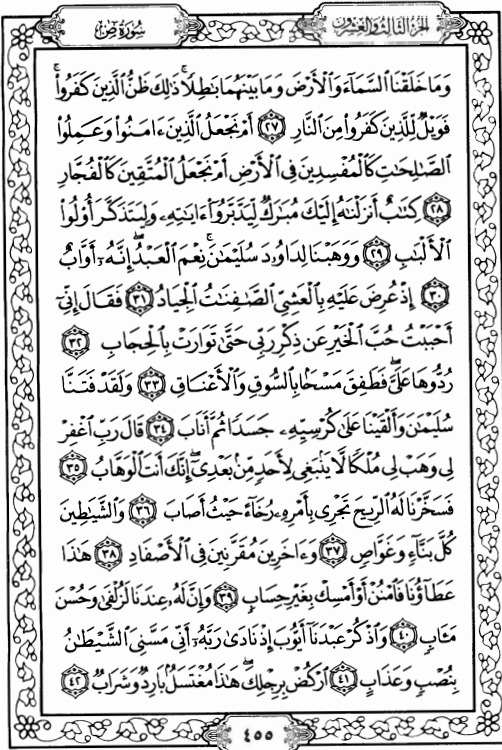 الجزء الثالث والعشرون
سورة ص
وَمَا خَلَقْنَا السَّمَاءَ وَالْأَرْضَ وَمَا بَيْنَهُمَا بَاطِلًا ۚ ذَٰلِكَ ظَنُّ الَّذِينَ كَفَرُوا ۚ
فَوَيْلٌ لِّلَّذِينَ كَفَرُوا مِنَ النَّارِ ٢٧ أَمْ نَجْعَلُ الَّذِينَ ءَامَنُوا وَعَمِلُوا
الصَّالِحَاتِ كَالْمُفْسِدِينَ فِي الْأَرْضِ أَمْ نَجْعَلُ الْمُتَّقِينَ كَالْفُجَّارِ
٢٨ كِتَابٌ أَنزَلْنَاهُ إِلَيْكَ مُبَارَكٌ لِّيَدَّبَّرُوا ءَايَاتِهِ وَلِيَتَذَكَّرَ أُولُوا
الْأَلْبَابِ ٢٩ وَوَهَبْنَا لِدَاوُودَ سُلَيْمَانَ ۚ نِعْمَ الْعَبْدُ ۖ إِنَّهُ أَوَّابٌ
٣٠ إِذْ عُرِضَ عَلَيْهِ بِالْعَشِيِّ الصَّافِنَاتُ الْجِيَادُ ٣١ فَقَالَ إِنِّي
أَحْبَبْتُ حُبَّ الْخَيْرِ عَن ذِكْرِ رَبِّي حَتَّىٰ تَوَارَتْ بِالْحِجَابِ ٣٢
رُدُّوهَا عَلَيَّ ۖ فَطَفِقَ مَسْحًا بِالسُّوقِ وَالْأَعْنَاقِ ٣٣ وَلَقَدْ فَتَنَّا
سُلَيْمَانَ وَأَلْقَيْنَا عَلَىٰ كُرْسِيِّهِ جَسَدًا ثُمَّ أَنَابَ ٣٤ قَالَ رَبِّ اغْفِرْ
لِي وَهَبْ لِي مُلْكًا لَّا يَنبَغِي لِأَحَدٍ مِّن بَعْدِي ۖ إِنَّكَ أَنتَ الْوَهَّابُ ٣٥
فَسَخَّرْنَا لَهُ الرِّيحَ تَجْرِي بِأَمْرِهِ رُخَاءً حَيْثُ أَصَابَ ٣٦ وَالشَّيَاطِينَ
كُلَّ بَنَّاءٍ وَغَوَّاصٍ ٣٧ وَءَاخَرِينَ مُقَرَّنِينَ فِي الْأَصْفَادِ ٣٨ هَٰذَا
عَطَاؤُنَا فَامْنُنْ أَوْ أَمْسِكْ بِغَيْرِ حِسَابٍ ٣٩ وَإِنَّ لَهُ عِندَنَا لَزُلْفَىٰ وَحُسْنَ
مَـَٔابٍ ٤٠ وَاذْكُرْ عَبْدَنَا أَيُّوبَ إِذْ نَادَىٰ رَبَّهُ أَنِّي مَسَّنِيَ الشَّيْطَانُ
بِنُصْبٍ وَعَذَابٍ ٤١ ارْكُضْ بِرِجْلِكَ ۖ هَٰذَا مُغْتَسَلٌ بَارِدٌ وَشَرَابٌ ٤٢
٤٥٥